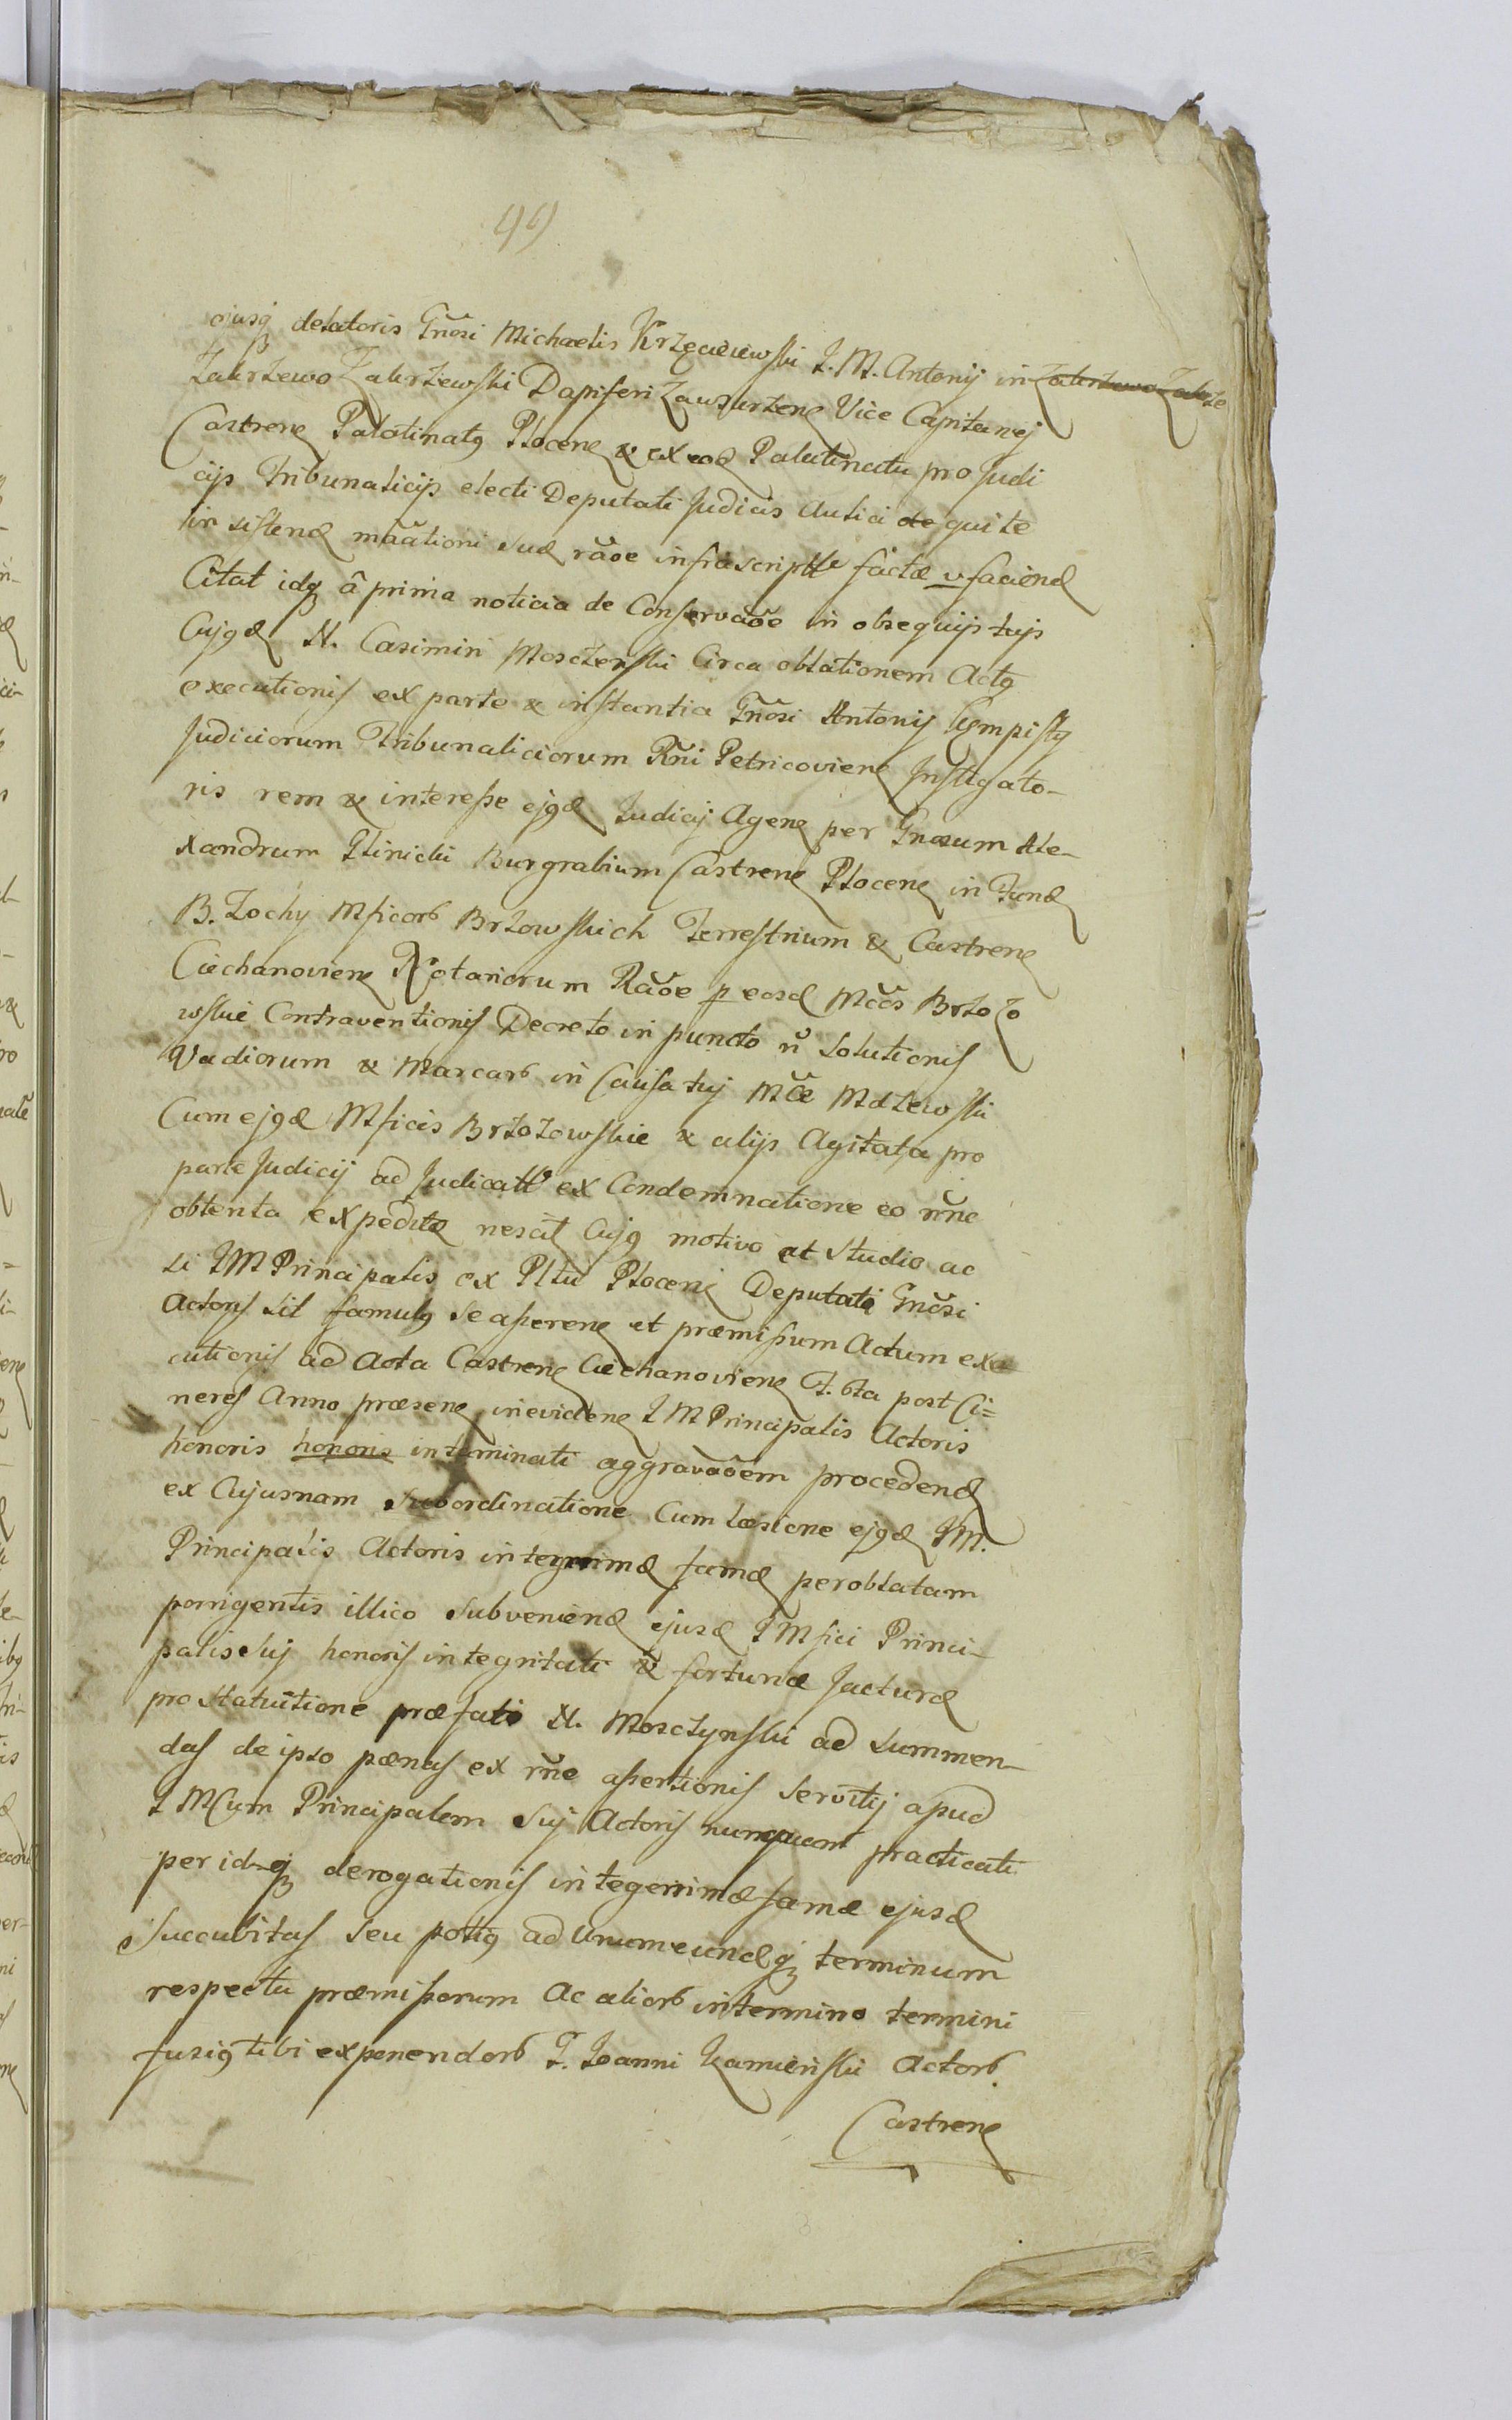 49
ejusq detatoris Gnosi Michaelis Krzęciewski I. M. Antonij in Zakrzewo Zakrze
Zakrzewo Zakrzewski Dapiferi Zawskrzenę Vice Capitanej
Castrenę Palatinatq Plocenę & ex eod Palatinatu pro Judi
cijs Tribunalicijs electi Deputati Judicis Aulici de quite
in sistend mãationi sua rãoe infrascriptte factæ v faciend
Citat idq â prima noticia de Conservaõe in obsequijs tujs
Cujqd N. Casimiri Moscżenski Circa oblationem Actq
executionis ex parte & instantia Gnõsi Antonij Kempistÿ
Judiciorum Tribunaliciorum Rñi Petricovienę Instigato-
ris rem & interesse ejqd Judicij Agenę per Gnosum Ale-
xandrum Glinicki Burgrabium Castrenę Plocenę in Fund
B. Zochy Mficorb Brzowskich Terrestrium & Castrenę
Ciechanovienę Notariorum Raõe p eosd Mccos Brzozo
wskie Contraventionis Decreto in puncto ñ Solutionis
Vadiorum & Marcarb in Causa tuj Mcæ Mdzewski
Cum ejqd Mficis Brzozowskie & alijs Agitata pro
parte Judicij ad Judicatt ex Condemnatione eo nñe
obtenta expeditæ nescit Cujq motivo at Studio ac
si IM Principalis ex Pltu Plocenę Deputati Gnõsi
Actoris sit famulq se asserenę et præmissum Actum exe
cutionis ad Acta Castrenę Ciechanovienę F. 6ta post Ci=
neres Anno præsenę inevidenę I M Principalis Actoris
honoris honoris intaminati aggravaõem procedend
ex Cujusnam Subordinatione Cum læsione ejqd IM.
Principalis Actoris integerrimæ famæ peroblatam
porrigentis illico Subveniend ejusd IMfici Princi-
palis Suj honoris integritati & fortunæ Jacturæ
pro Statuitione præfati N. Moscżynski ad Summen-
das de ipso pænas ex rñe assertionis Servitij apud
I MCum Principalem Suj Actoris numquam practicati
per id-q derogationis integerrimæ famæ ejusd
Succubitas seu potiq ad Unum eundq terminum
respectu præmissorum ac aliorb in termino termini
fusiq tibi exponendorb F. Joanni Kamieński Actorb.
Castrenę